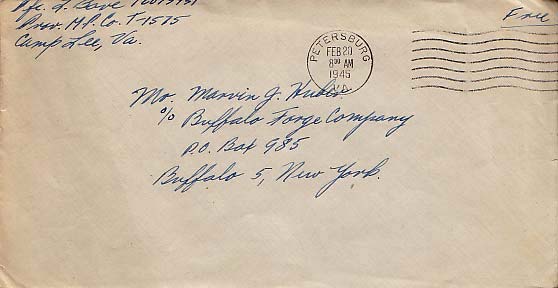 Pfc. L. Save
Prov. M.P. Co. T-1575
Camp Lee, Va.
Free
PETERSBURG
FEB 20
8 30 AM
1945
VA.
Mr. Marvin J. Huber
% Buffalo Forge Company
P.O. Box 985
Buffalo 5, New York.